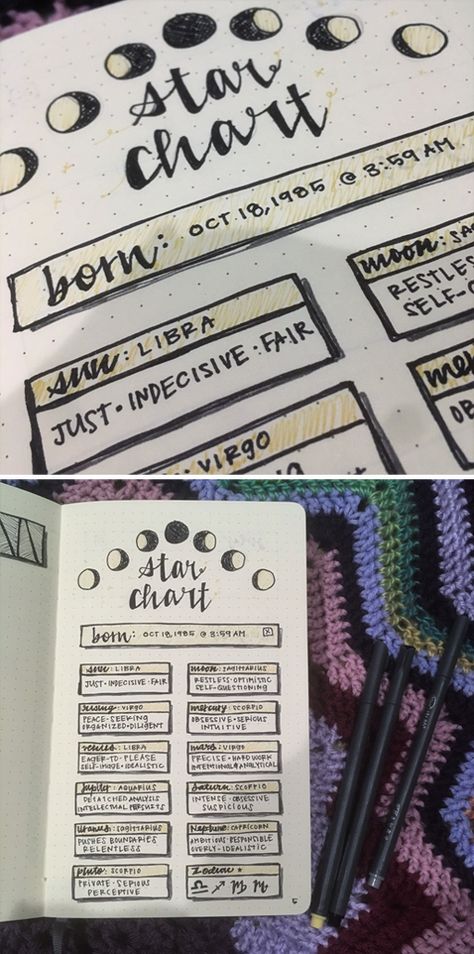 star
chart
born: OCT 18, 1985 @ 3:59 AM
moon: SAG
RESTLES
SELF-Q
sun: LIBRA
JUST • INDECISIVE • FAIR
mer
OB
: VIRGO
star
chart
born: OCT 18, 1985 @ 3:59 AM
sun: LIBRA
JUST • INDECISIVE • FAIR
moon: SAGITTARIUS
RESTLESS • OPTIMISTIC
SELF-QUESTIONING
rising: VIRGO
PEACE-SEEKING
ORGANIZED • DILIGENT
mercury: SCORPIO
OBSESSIVE • SERIOUS
INTUITIVE
venus: LIBRA
EAGER-TO-PLEASE
SELF-IMAGE • IDEALISTIC
mars: VIRGO
PRECISE • HARD WORK
INTENTIONAL • ANALYTICAL
jupiter: AQUARIUS
DETATCHED ANALYSIS
INTELLECTUAL PURSUITS
saturn: SCORPIO
INTENSE • OBSESSIVE
SUSPICIOUS
uranus: SAGITTARIUS
PUSHES BOUNDARIES
RELENTLESS
neptune: CAPRICORN
AMBITIOUS • RESPONSIBLE
OVERLY-IDEALISTIC
pluto: SCORPIO
PRIVATE • SERIOUS
PERCEPTIVE
Zodiac ★
♎ ♐ ♍ ♏